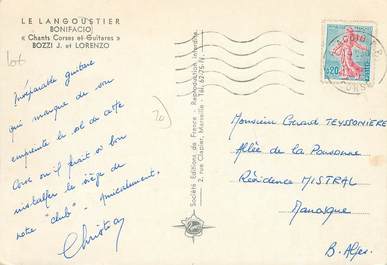 LE LANGOUSTIER
BONIFACIO
« Chants Corses et Guitares »
BOZZI J. et LORENZO
Inséparable guitare
qui marque de son
empreinte le sol de cette
Corse où il ferait si bon
installer le siège de
notre "club". Amicalement.
Christian
Société Editions de France - Reproduction interdite
2, rue Clapier, Marseille - Tél. 62-75
0,20
Monsieur Gérard TEYSSONIERE
Allée de la Poussonne
Résidence MISTRAL
Manosque
B. Alpes